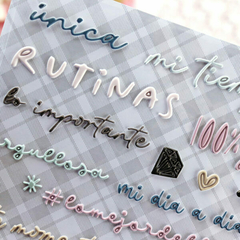 única
RUTINAS
mi tiem
lo importante
100%
orgullosa
mi día a día
#lamejordel